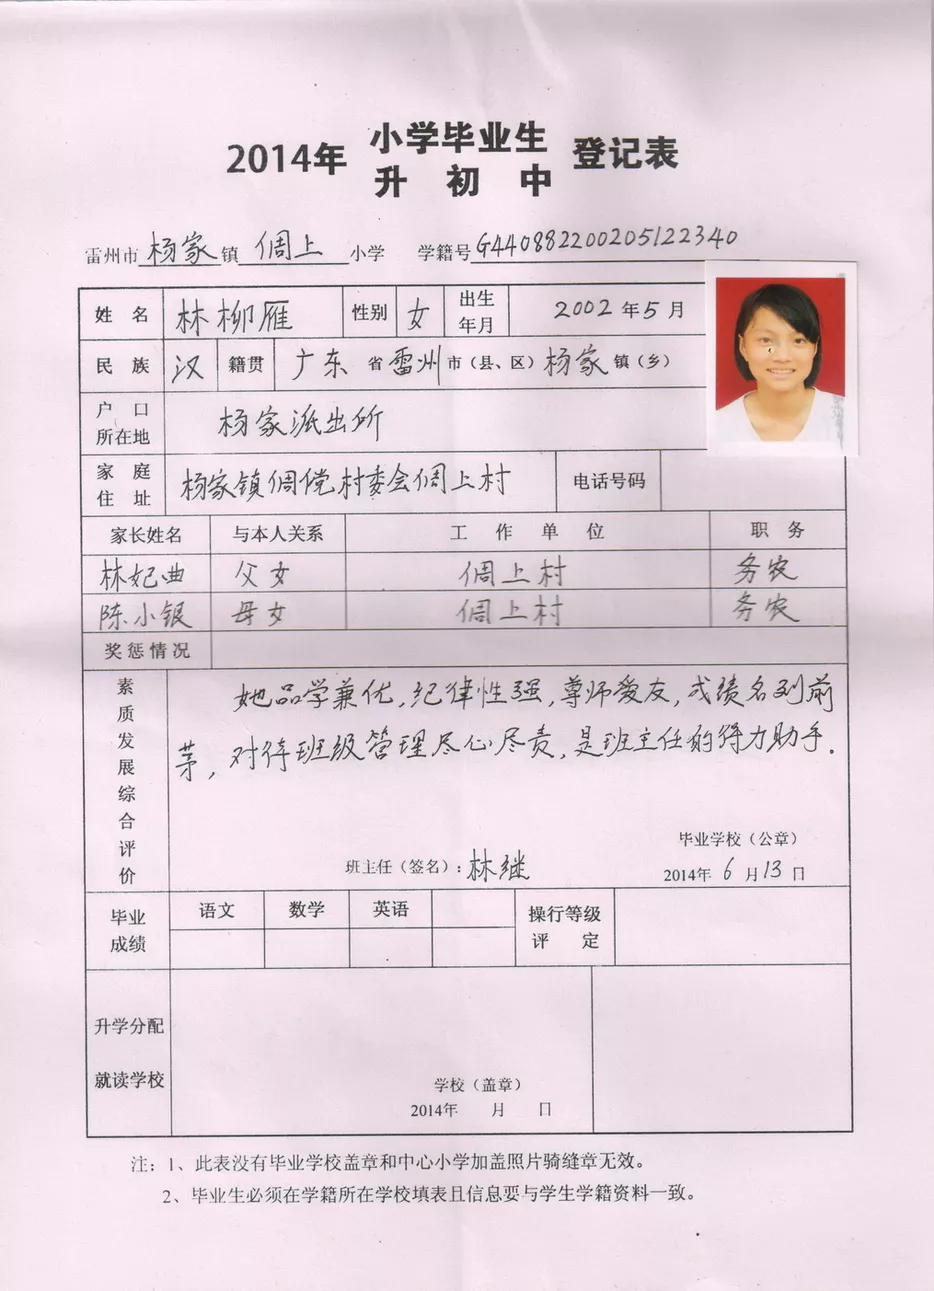 2014年 小学毕业生 登记表
升初中
雷州市杨家镇倜上小学 学籍号G440882200205122340
姓名 林柳雁 性别 女 出生年月 2002年5月
民族 汉 籍贯 广东省雷州市(县、区)杨家镇(乡)
户口所在地 杨家派出所
家庭住址 杨家镇倜傥村委会倜上村 电话号码
家长姓名 与本人关系 工作单位 职务
林妃曲 父女 倜上村 务农
陈小银 母女 倜上村 务农
奖惩情况
素质发展综合评价
她品学兼优,纪律性强,尊师爱友,成绩名列前
茅,对待班级管理尽心尽责,是班主任的得力助手.
毕业学校(公章)
班主任(签名):林继
2014年6月13日
毕业成绩 语文 数学 英语 操行等级评定
升学分配
就读学校
学校(盖章)
2014年 月 日
注:1、此表没有毕业学校盖章和中心小学加盖照片骑缝章无效。
2、毕业生必须在学籍所在学校填表且信息要与学生学籍资料一致。